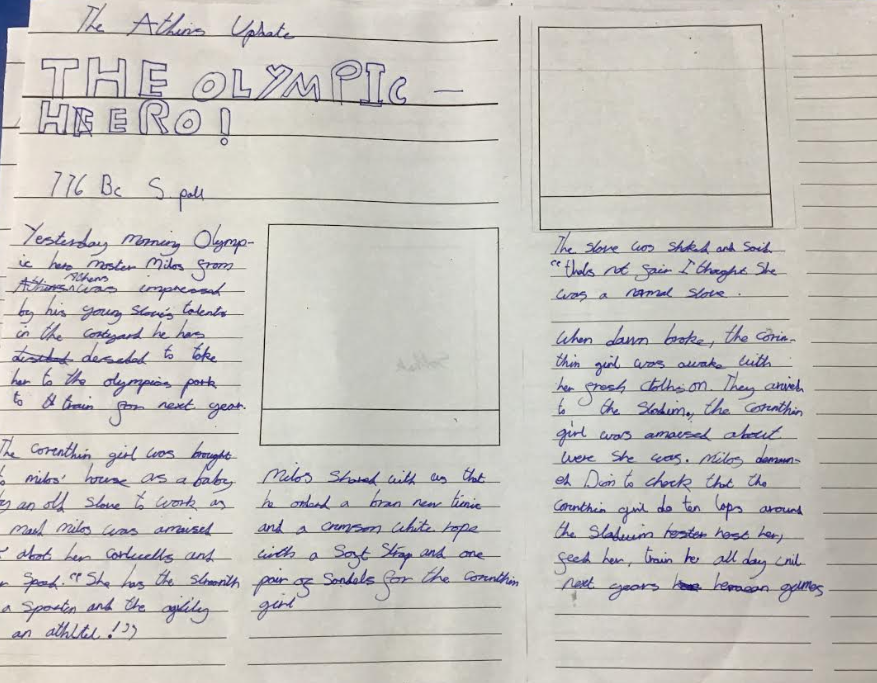 The Athins Update
THE OLYMPIC -
HEERO!
776 Bc S. pall
Yesterday morning Olymp-
ic hero master Milos from
Athens was impressed
by his young slave's talents
in the cortyard he has
deseded to take
her to the olympics park
to train for next year.
The corenthin girl was brought
milos' house as a baby
an old slove to work as
maid Milos was amaised
about her cartwells and
Speed. "She has the strenth
a Spartin and the agility
an athltel!"
Milos Shared with us that
he orderd a bran new tunic
and a crimson white rope
with a Soft Strap and one
pair of Sandels for the corenthin
girl
The slove was shoked and said
"thats not fair I thought She
was a normal slove.
When dawn broke, the corin-
thin girl was awake with
her fresh cloths on. They arived
to the Stadium, the corenthin
girl was amaised about
were She was. Milos deman-
ed Dion to check that the
corinthin girl do ten laps around
the Stadium host her,
feed her, train her all day unil
next years heraean games